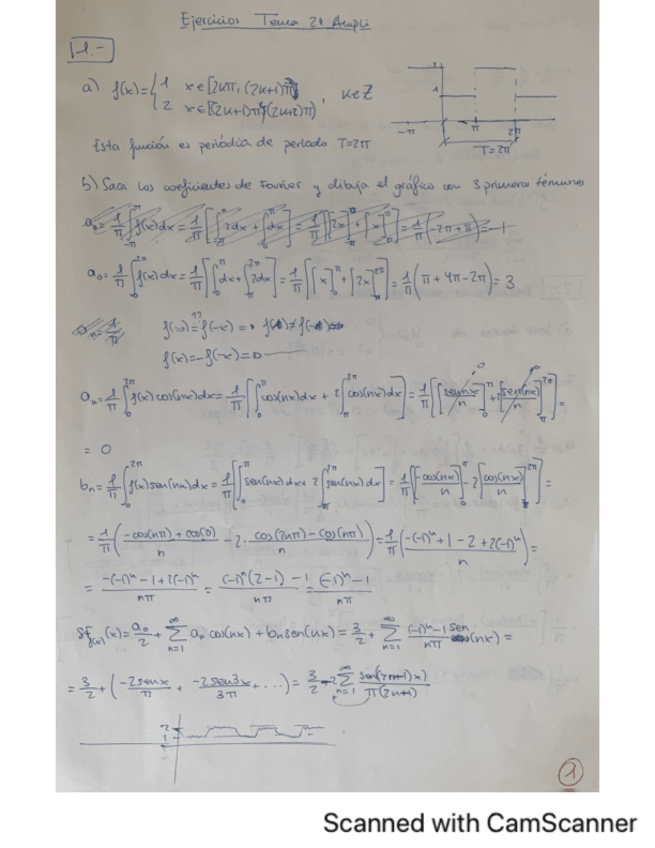 Ejercicios Tema 20 Ampli
1.-
a) f(x)={ 1 x∈[2kπ, (2k+1)π)
2 x∈[(2k+1)π, (2k+2)π) , k∈Z
2
1
-π π 2π
T=2π
Esta función es periódica de periodo T=2π
b) Saca los coeficientes de Fourier y dibuja el gráfico con 3 primeros términos
a₀=1/π ∫f(x)dx = 1/π[∫2dx + ∫dx] = 1/π[[2x] + [x]] = 1/π(-2π+π) = -1
a₀=1/π ∫₀^2π f(x)dx = 1/π[∫₀^π dx+∫_π^2π 2dx] = 1/π[[x]₀^π + [2x]_π^2π] = 1/π(π+4π-2π) = 3
f(x)=f(-x)
f(x)=-f(-x)
aₙ=1/π ∫₀^2π f(x)cos(nx)dx = 1/π[∫₀^π cos(nx)dx + 2∫_π^2π cos(nx)dx] = 1/π[[sen nx/n]₀^π + 2[sen(nx)/n]_π^2π] =
= 0
bₙ=1/π ∫₀^2π f(x)sen(nx)dx = 1/π[∫₀^π sen(nx)dx + 2∫_π^2π sen(nx)dx] = 1/π[[-cos(nx)/n]₀^π - 2[cos(nx)/n]_π^2π] =
= 1/π( (-cos(nπ)+cos(0))/n - 2·(cos(2nπ)-cos(nπ))/n ) = 1/π( (-(-1)ⁿ+1-2+2(-1)ⁿ)/n ) =
= (-(-1)ⁿ-1+2(-1)ⁿ)/nπ = ((-1)ⁿ(2-1)-1)/nπ = ((-1)ⁿ-1)/nπ
Sf_f(x)(x)= a₀/2 + Σ_{n=1}^∞ aₙcos(nx)+bₙsen(nx) = 3/2 + Σ_{n=1}^∞ ((-1)ⁿ-1)/nπ sen(nx) =
= 3/2 + (-2senx/π + -2sen3x/3π + ...) = 3/2 - 2Σ_{n=1}^∞ sen((2n+1)x)/π(2n+1)
2
1
1
Scanned with CamScanner